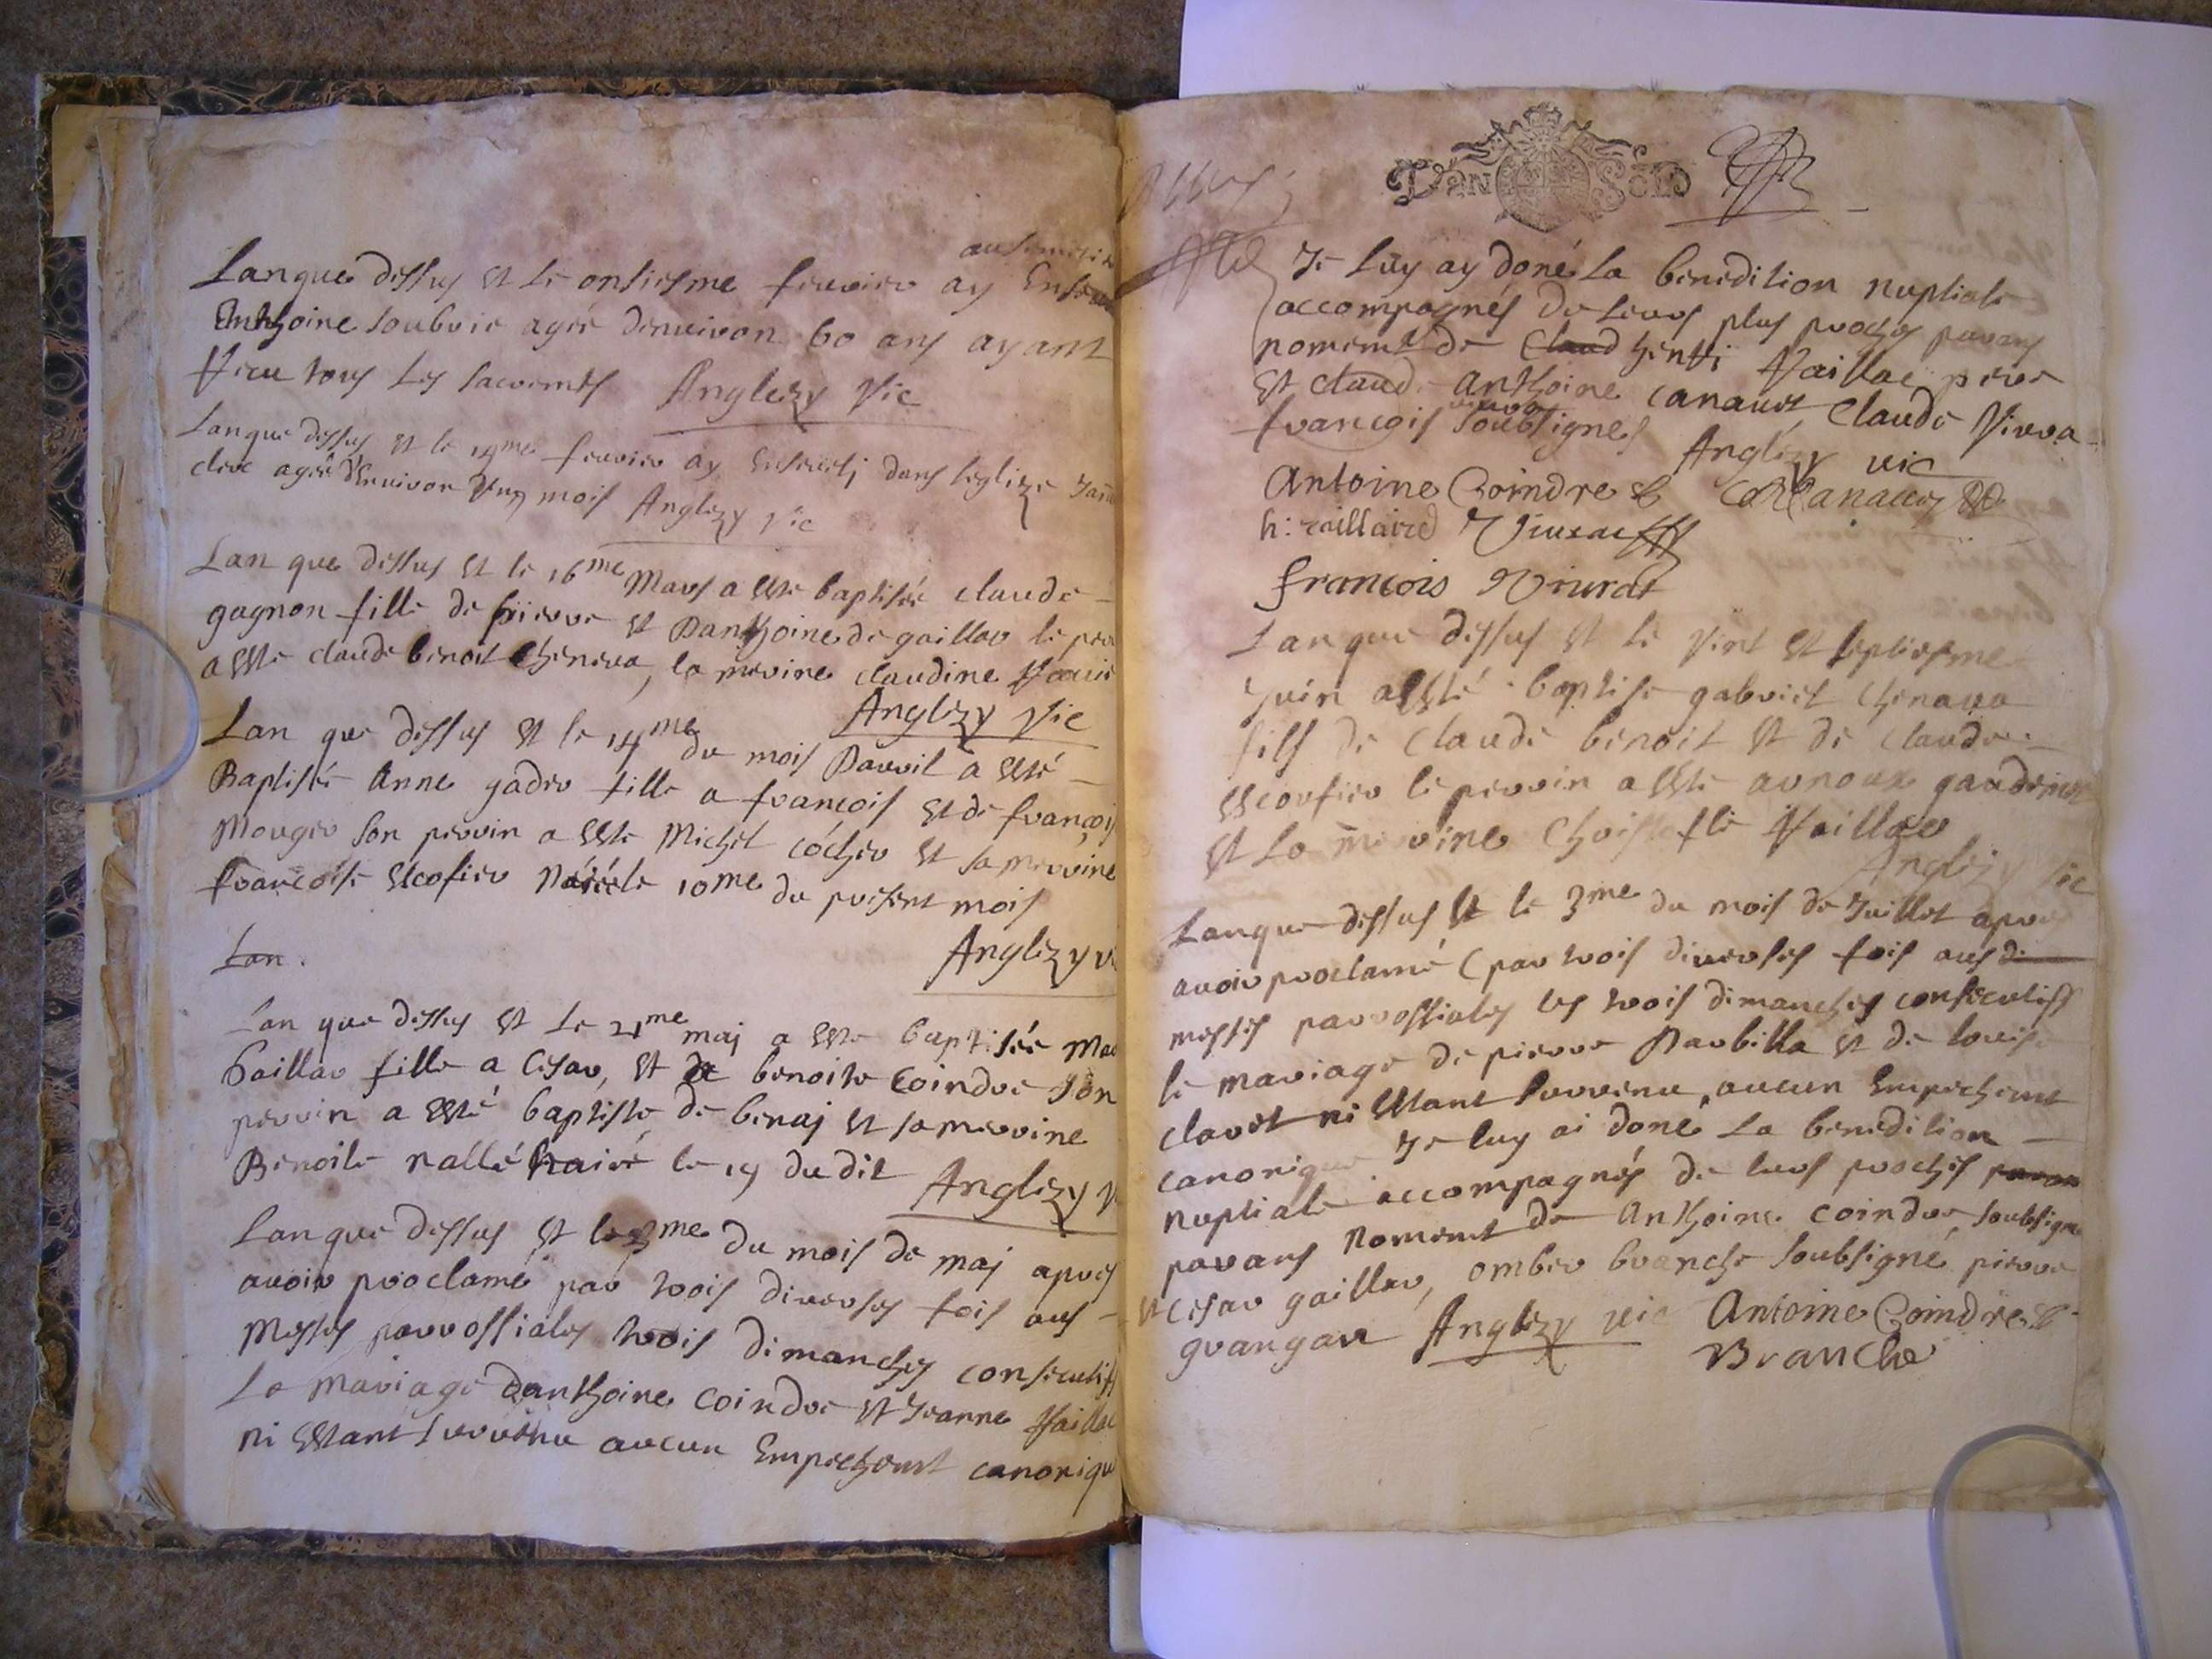 Lan que dessus et le onsiesme feuvier ay Enseue
Anthoine soubvie ageé denuivon 60 ans ayant
Receu tous les sacvemts Anglezy Vic
Lan que dessus et le 14me feuvier ay Enseuelj dans leglize
agee denuivon vnz mois Anglezy vic
Lan que dessus et le 16me Mavs a este baptiséé claude
gagnon fille de pierre et Danthoine de gaillav le pev
a este claude benoit Cheneva, la mevine claudine
Anglezy Vic
Lan que dessus et le 14me du mois Davvil a esté
Baptiséé Anne gadev fille a francois et de francois
Mougev son pevvin a este Michel cochev et sa mevvine
francoise Escofiev le 10me du present mois
Anglezy vi
Lan.
Lan que dessus et le 21me maj a este baptiséé Ma
Gaillav fille a Cesav, et de benoite Coindve son
pevvin a esté baptiste de benaj et sa mevvine
Benoite nallé le 19 du dit Anglezy V
Lan que dessus et le me du mois de maj apves
auoiv proclamé pav tvois divevses fois aus
Messes pavvossiales tvois dimanches consecutifs
Le maviage danthoine Coindve et Jeanne
ni Estant suvvenu aucun Empechemt canonique
VAN SOLS
Je luy ay doné la benedition nuptiale
accompagnés de leuvs plus pvoches pavans
nomemt de claud henvi pere
et claude anthoine canauet claude Vivva
viuva
francois soubsignes Anglezy vic
Antoine Coindre Canauet
h: raillaird Viurat
francois Viurat
Lan que dessus et le Vint et septiesme
Juin a esté baptise gabviel Chenava
fils de claude benoit et de claude
escoufiev le pevvin a este avnoux
et la mevvine
Anglezy vic
Lan que dessus et le 3me du mois de Juillet apve
auoiv pvoclamé (pav tvois divevses fois aus di
messes pavvossiales les tvois dimanches consecutifs
le maviage de piervve Davbilla et de louise
clavet ni Estant suvvenu aucun Empechemt
canonique Je luy ai doné La benedition
nuptiale accompagnés de leuvs pvoches pavan
pavans nomemt de anthoine coindve, soubsigne
et Cesav gaillav, ombev bvanche soubsigné piervve
gvangav Anglezy vic Antoine Coindre
Branche